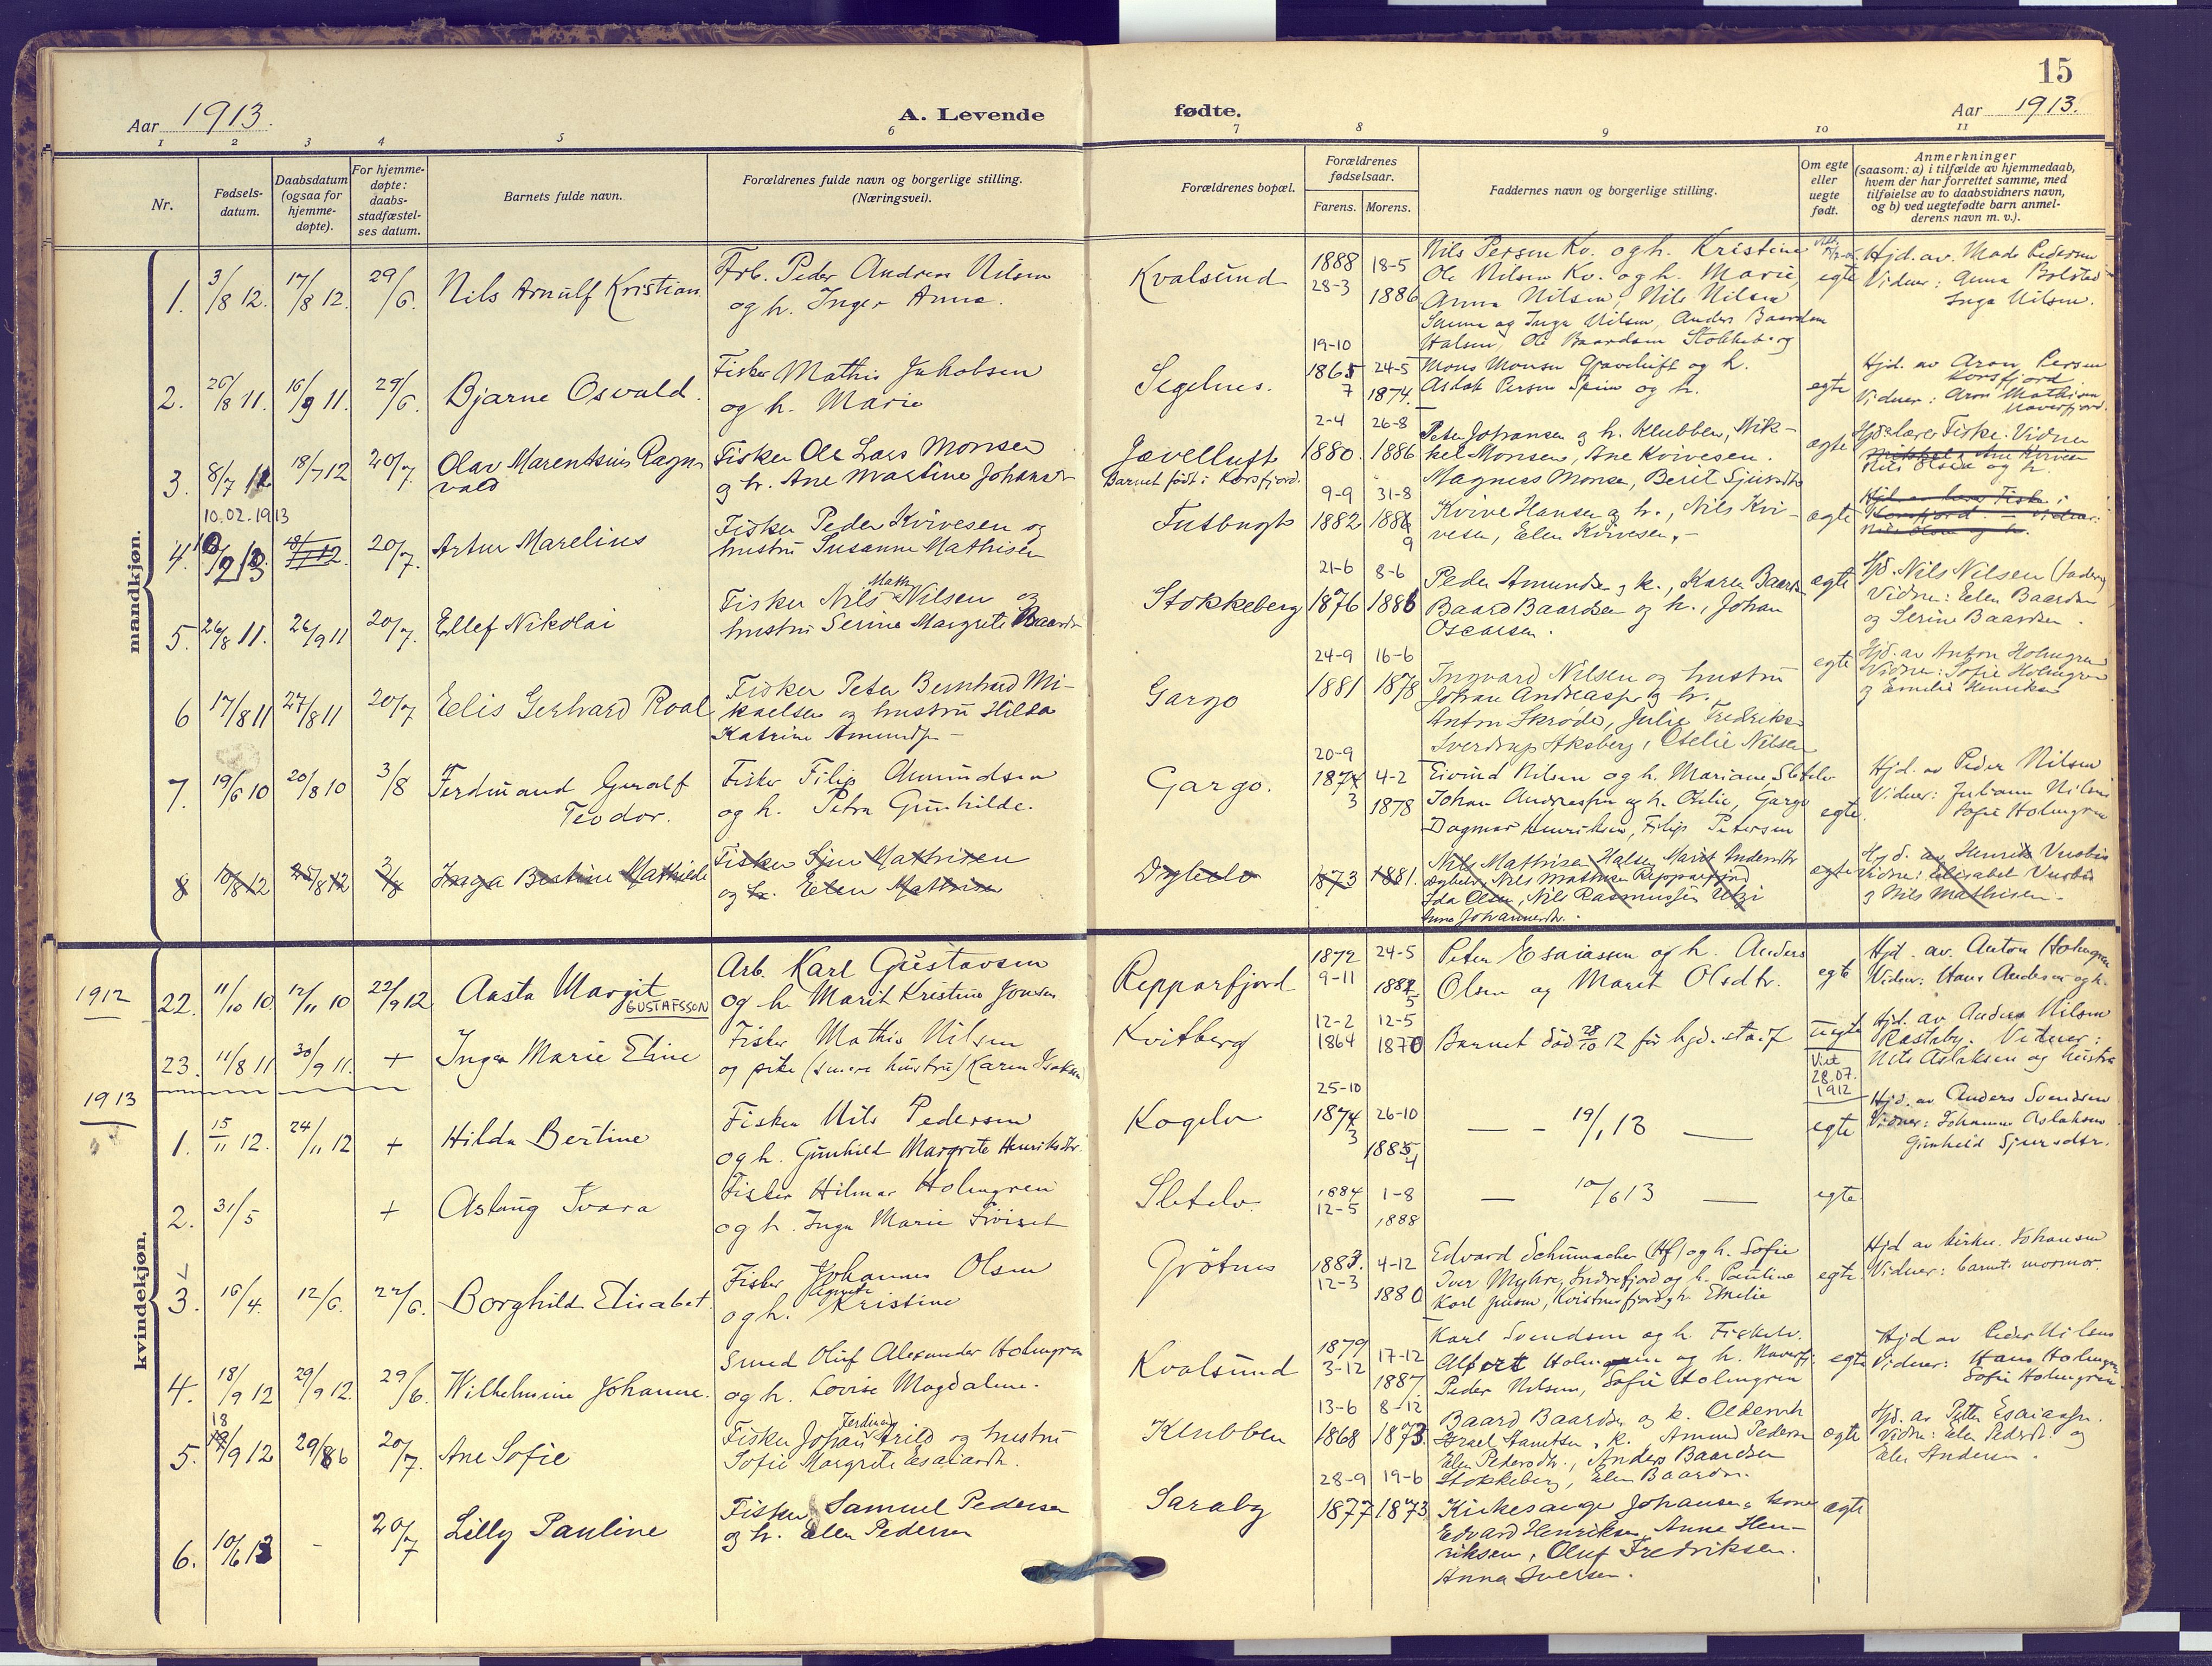 15
Aar 1913.
A. Levende
fødte.
Aar 1913.
1 2 3 4 5 6 7 8 9 10 11
Nr.
Fødsels-
datum.
Daabsdatum
(ogsaa for
hjemme-
døpte).
For hjemme-
døpte:
daabs-
stadfæstel-
ses datum.
Barnets fulde navn.
Forældrenes fulde navn og borgerlige stilling.
(Næringsvei).
Forældrenes bopæl.
Forældrenes
fødselsaar.
Farens. Morens.
Faddernes navn og borgerlige stilling.
Om egte
eller
uegte
født.
Anmerkninger
(saasom: a) i tilfælde av hjemmedaab,
hvem der har forrettet samme, med
tilføielse av to daabsvidners navn,
og b) ved uegtefødte barn anmel-
derens navn m. v.).
mandkjøn.
1. 3/8 12. 17/8 12. 29/6. Nils Arnulf Kristian
Peder Andreas Nilsen
og h. Inger Anna.
Kvalsund
1888 28-3
18-5 1886
Nils Persen Kv. og h. Kristine
Ole Nilsen Kv. og h. Marie,
Anna Nilsen, Nils Nilsen
og Inga Nilsen, Anders Baardsen
Ole Baardsen Stokkeberg
egte
Hjd. av. Mads Pedersen
Vidner: Anna Bolstad
Inga Nilsen.
2. 26/8 11. 16/9 11. 29/6 Bjarne Osvald.
Fisker Mathis Jakobsen
og h. Marie
Segelnes.
19-10 1865 7
24-5 1874.
Mons Monsen Graveluft og h.
Aslak Persen og h.
egte
Hjd. av Aron Persen
Korsfjord
Vidner: Aron Mathisen
Naverfjord.
3. 8/7 12 18/7 12 20/7. Olav Marentsius Ragn-
vald
Fisker Ole Lars Monsen
og h. Ane Martine Johansdr
Jævelluft
Barnet født i Korsfjord.
2-4 1880.
26-8 1886
Peter Johansen og h. Klubben, Mik-
kel Monsen, Ane Kvivesen.
Magness Monsen, Berit Sjursdtr
egte
Hjd. lærer Fiske. Vidner
Nils Olsen og h.
10.02.1913
4. 10/2 13 18/7 12. 20/7. Artur Marelius
Fisker Peder Kvivesen og
hustru Susanne Mathisen
9-9 1882
31-8 1886 9
Kvive Hansen og h., Nils Kvi-
vesen, Elen Kvivesen.
egte
Hjd. av lærer Fiske i
Korsfjord - Vidner:
Nils Olsen og h.
5. 26/8 11. 26/9 11 20/7. Ellef Nikolai
Fisker Nils Math. Nilsen og
hustru Serine Margrete Baardsr
Stokkeberg
21-6 1876
8-6 1886
Peder Amundsen og k., Karen Baardsen
Baard Baardsen og h., Johan
Oscarsen.
egte
Hjd. Nils Nilsen (fader)
Vidner: Elen Baardsen
og Serine Baardsen.
6 17/8 11 27/8 11 20/7 Eelis Gerhard Roal
Fisker Peter Bernhard Mi-
kaelsen og hustru Hilda
Katrine Amundsn
Gargo
24-9 1881
16-6 1878
Ingvard Nilsen og hustru
Johan Andreasn og h.
Anton Skrøder, Julie Fredriksen
Sverdrup Aksberg, Otelie Nilsen
egte
Hjd. av Anton Holmgren
Vidner: Sofie Holmgren
og Emelie Henriksen
7. 19/6 10 20/8 10 3/8 Ferdinand Geralf
Teodor.
Fisker Filip Amundsen
og h. Petra Gunhilde.
Gargo.
20-9 1874 3
4-2 1878
Eivind Nilsen og h. Mariane, Sletelv
Johan Andreassen og h. Otelie, Gargo
Dagmar Henriksen, Filip Petersen
egte.
Hjd. av Peder Nilsen
Vidner: Juliane Nilsen
Sofie Holmgren
8 10/8 12 25/8 12 3/8 Inga Bertine Mathilde
Fisker Sjur Mathisen
og h. Elen Mathisen
1873 1881.
Nils Mathisen Halse, Marit Andersdtr
Nils Mathisen Repparfjord
Ida Olsen, Nils Rasmussen Utsi
Anna Johannesdr.
egte
Hjd. av Henrik
Vidner: Elisabet
og Nils Mathisen.
kvindekjøn.
1912
22. 11/10 10. 12/11 10 22/9 12. Aasta Margit
GUSTAFSSON
Arb. Karl Gustavsen
og h Marit Kristine Jonsen
Repparfjord
1872 9-11
24-5 1882 5
Peter Esaiassen og h. Anders
Olsen og Marit Olsdtr.
egte
Hjd. av. Anton Holmgren
Vidner: Hans Andersen og h.
23. 11/8 11 30/9 11. + Inga Marie Eline
Fisker Mathis Nilsen
og pike (senere hustru) Karen Isaksen
Kvitberg
12-2 1864
12-5 1870
Barnet död 28/10 12 för hjd. sta.f
uegte
Viet
28.07.
1912
Hjd. av Anders Nilsen
Rastaby. Vidner:
Nils Aslaksen og hustru
1913
1. 15/11 12. 24/11 12 + Hilda Bertine
Fisker Nils Pedersen
og h. Gunhild Margrete Henriksdtr.
Kogelv
25-10 1874 3
26-10 1885 4
— - 19/1 13 —
egte
Hjd. av Anders Svendsen
Vidner: Johanne Aslaksen
Gunhild Sjursdtr.
2. 31/5 + Aslaug Ivara
Fisker Hilmar Holmgren
og h. Inga Marie
Sletelv.
1884 12-5
1-8 1888
— 10/6 13 —
egte
3. 16/4. 12/6. 22/6. Borghild Elisabet.
Fisker Johannes Olsen
og h. Agnete Kristine
Grötnes
1883. 12-3
4-12 1880
Edvard Schumacher (Hf) og h. Sofie
Iver Myhre, Indrefjord og h. Pauline
Karl Jensen, Kvistnesfjord og h. Emelie
egte
Hjd av kirkes. Johansen
Vidner: barnets mormor.
4. 18/9 12 29/9 12. 29/6. Wilhelmine Johanne.
Smed Oluf Alexander Holmgren
og h. Lovise Magdalene.
Kvalsund
1879 3-12
17-12 1887
Karl Svendsen og h. Fiskelv.
Albert Holmgren og h. Naverfj.
Peder Nilsen, Sofie Holmgren
egte
Hjd av Peder Nilsen
Vidner: Hans Holmgren
Sofie Holmgren.
5. 18/9 12 29/8 6 20/7. Ane Sofie
Fisker Johan Ferdinand Arild og hustru
Sofie Margrete Esaiasdtr.
Klubben
13-6 1868
8-12 1873.
Baard Baardsen og k. Oldervik
Israel Hamtsen, k. Amund Pedersen
Elen Pedersdtr., Anders Baardsen
Stokkeberg, Elen Baardsn.
egte
Hjd. av Petter Esaiassn.
Vidner: Elen Pedersdtr. og
Elen Andersen.
6. 10/6 13 - 20/7 Lilly Pauline
Fisker Samuel Pedersen
og h. Elen Pedersen
Saraby
28-9 1877
19-6 1873
Kirkesanger Johansen & kone
Edvard Henriksen, Anne Hen-
riksen, Oluf Fredriksen.
Anna Iversen.
egte